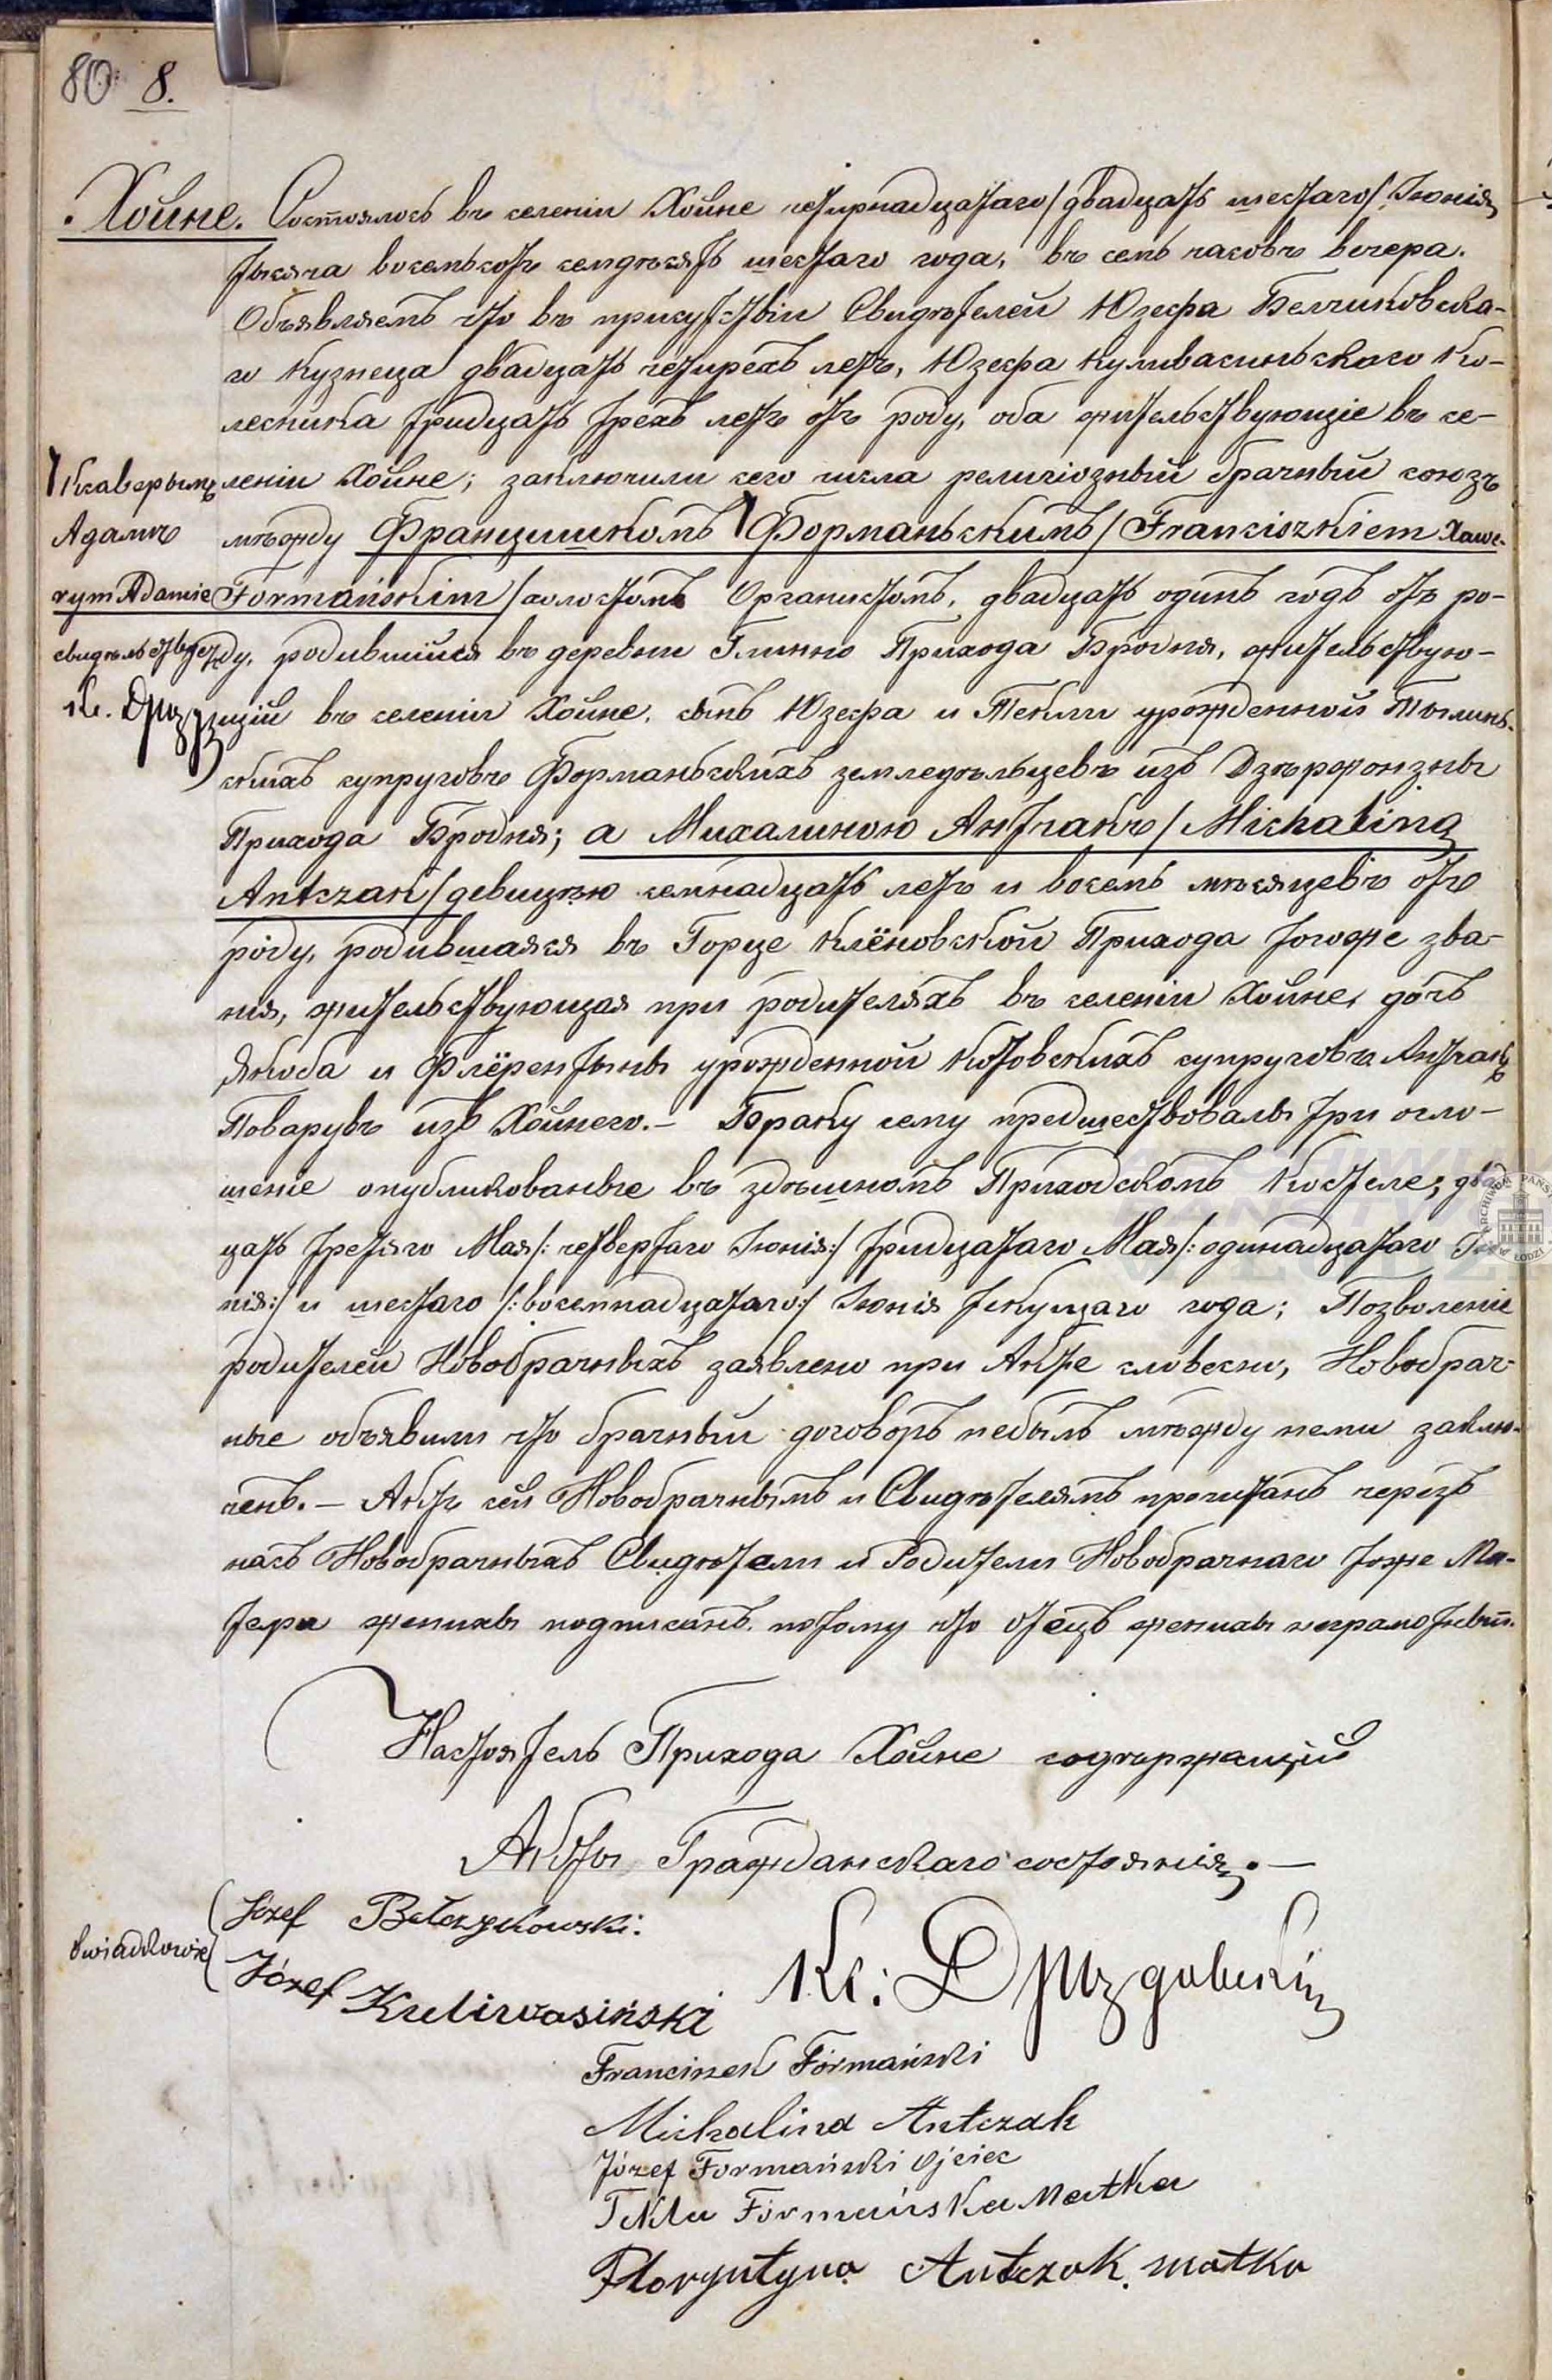 80 8.
Хойне. Состоялось въ селеніи Хойне четырнадцатаго/двадцать шестаго/Іюнія
тысяча восемьсотъ семдѣсять шестаго года, въ семь часовъ вечера.
Объявляемъ что въ присутствіи Свидѣтелей Юзефа Белчиковска-
го Кузнеца двадцать четырехъ летъ, Юзефа Куливасиньскаго Ко-
лесника тридцать трехъ летъ отъ роду, оба жительствующіе въ се-
леніи Хойне; заключили сего числа религіозный брачный союзъ
Ксаверымъ
Адамъ
между Францишкомъ Форманьскимъ/Franciszkiem Xawe-
rym Adamie Formańskim/холостомъ Органистомъ, двадцать одинъ годъ отъ ро-
свидѣльствую
Кс. Дрозд
ду, родившійся въ деревни Глинно Прихода Бродня, жительствую-
щій въ селеніи Хойне, сынъ Юзефа и Текли урожденной Тылинь-
скихъ супруговъ Форманьскихъ земледѣльцевъ изъ
Прихода Бродня; а Михалиною Антчакъ/Michaliną
Antczak/девицѣю семнадцать летъ и восемь мѣсяцевъ отъ
роду, родившаяся въ Горце Клёновской Прихода тогоже зва-
нія, жительствующая при родителяхъ въ селеніи Хойне, дочъ
Якоба и Флёрентыны урожденной Котовскихъ супруговъ Антчакъ
Поварувъ изъ Хойнего.- Браку сему предшествовалы три огло-
шеніе опубликованые въ здѣшномъ Приходскомъ Костеле; двад
цать третяго Мая/:четвертаго Іюнія:/тридцатаго Мая/:одинадцатаго Ію
нія:/ и шестаго/:восемнадцатаго:/ Іюнія текущаго года; Позволеніе
родителей Новобрачныхъ заявлено при Акте словесно, Новобрач-
ные объявили что брачный договоръ небылъ между неми заклю-
ченъ.- Актъ сей Новобрачнымъ и Свидѣтелямъ прочитанъ черезъ
насъ Новобрачныхъ Свидѣтели и Родители Новобрачнаго тоже Ма-
тера жениха подписанъ, потому что отецъ жениха неграмотный.
Настоятель Прихода Хойне содержащій
Акты Гражданскаго состоянія.-
Józef Bełczykowski.
świadkowie
Józef Kuliwasiński
Кс: Дроздовскій
Franciszek Formański
Michalina Antczak
Józef Formański Ojciec
Tekla Formańska Matka
Floryntyna Antczak. matka